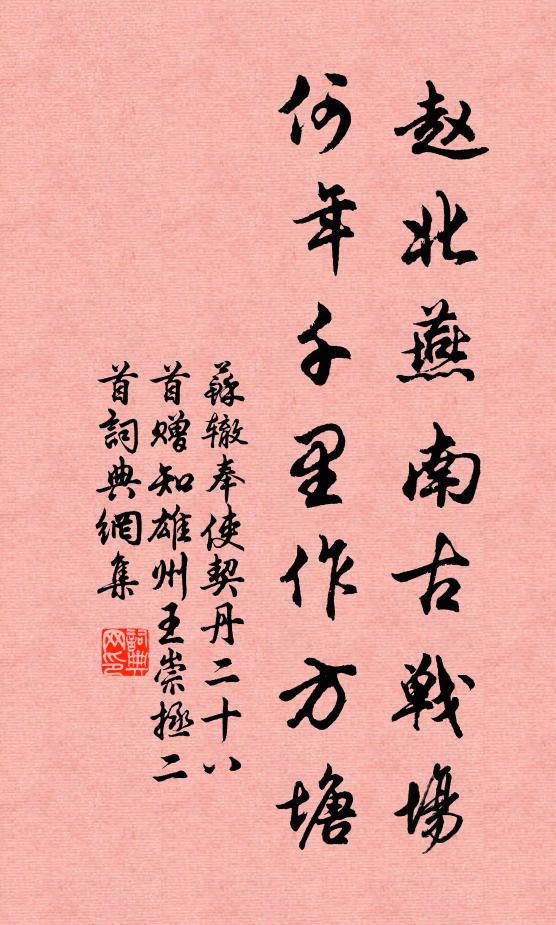 赵北燕南古戰場
何年千里作方塘
蘇辙奉使契丹二十八
首赠知雄州王崇拯二
首詞典網集
詞典
网印